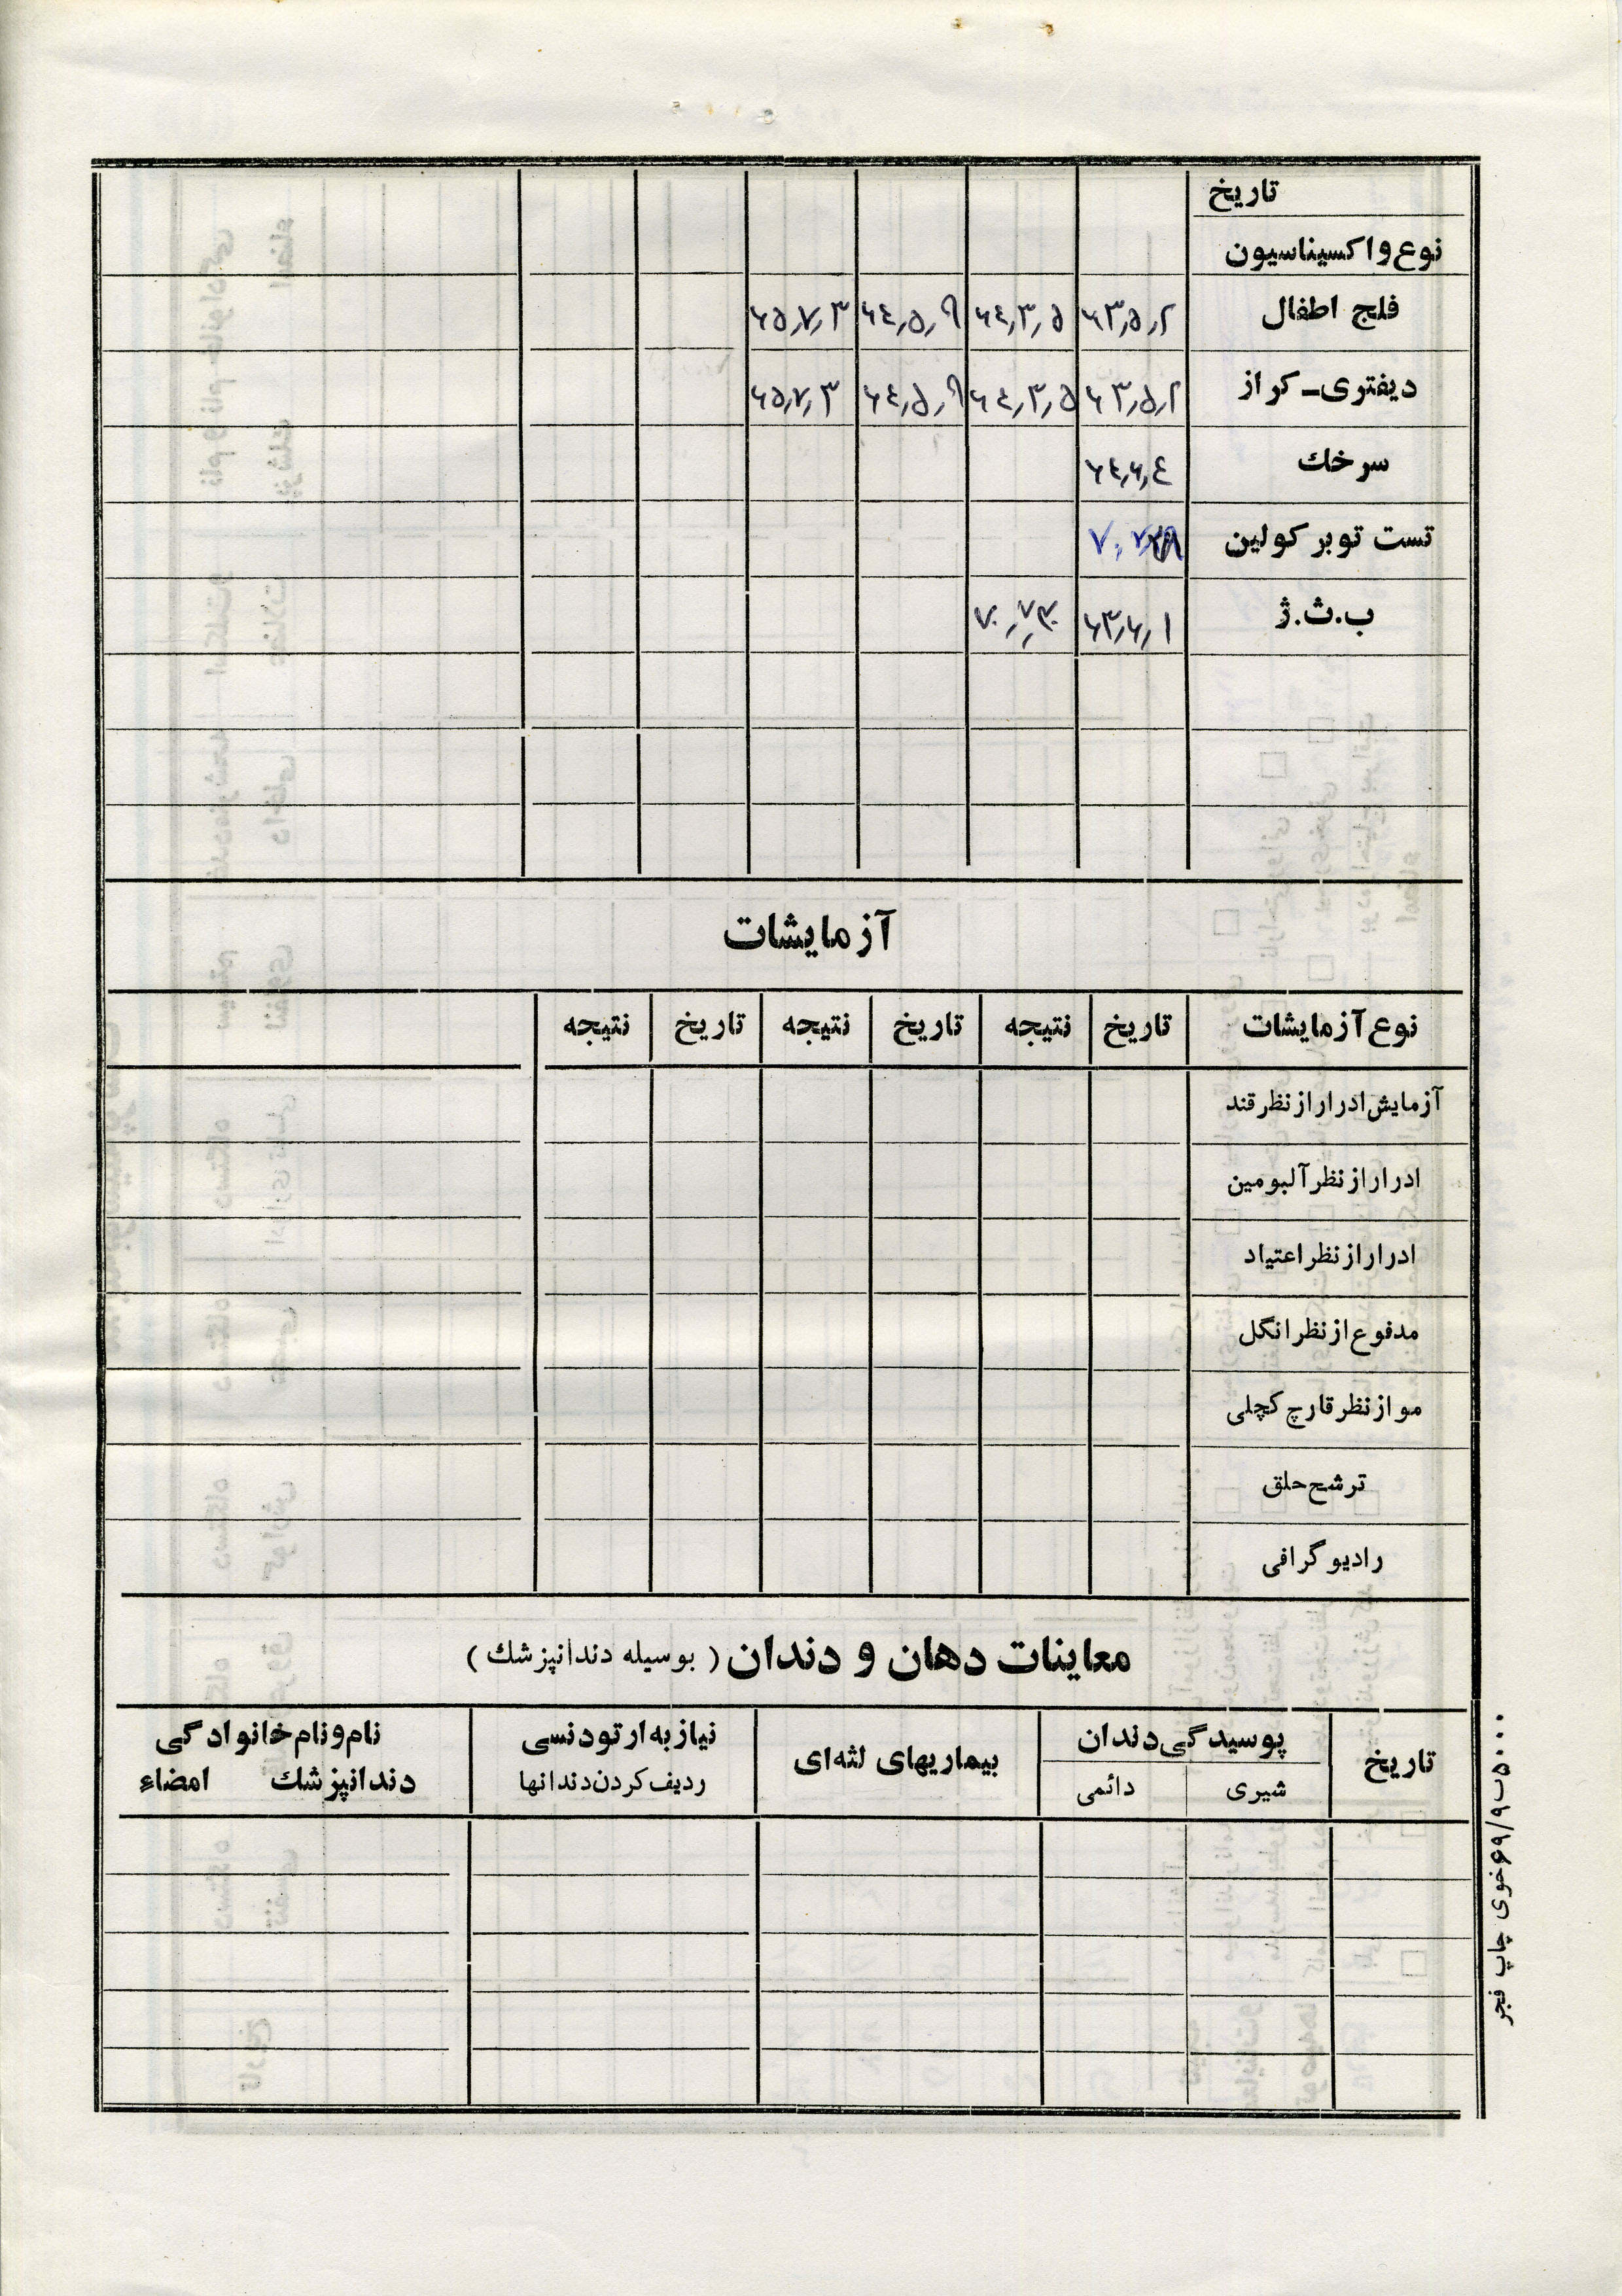 تاریخ
نوع واکسیناسیون
فلج اطفال ۶۳٫۵٫۲ ۶٤٫۳٫۵ ۶٤٫۵٫۹ ۶۵٫۷٫۳
دیفتری-کزاز ۶۳٫۵٫۲ ۶٤٫۳٫۵ ۶٤٫۵٫۹ ۶۵٫۷٫۳
سرخك ۶٤٫۶٫٤
تست توبرکولین
ب.ث.ژ ۶۳٫۶٫۱
آزمایشات
نوع آزمایشات تاریخ نتیجه تاریخ نتیجه تاریخ نتیجه
آزمایش ادرار از نظر قند
ادرار از نظر آلبومین
ادرار از نظر اعتیاد
مدفوع از نظر انگل
مو از نظر قارچ کچلی
ترشح حلق
رادیوگرافی
معاینات دهان و دندان ( بوسیله دندانپزشك )
تاریخ پوسیدگی دندان بیماریهای لثه‌ای نیاز به ارتودنسی نام و نام خانوادگی
شیری دائمی ردیف کردن دندانها دندانپزشك امضاء
۵۰۰۰ب۶۹/۹خوی چاپ فجر